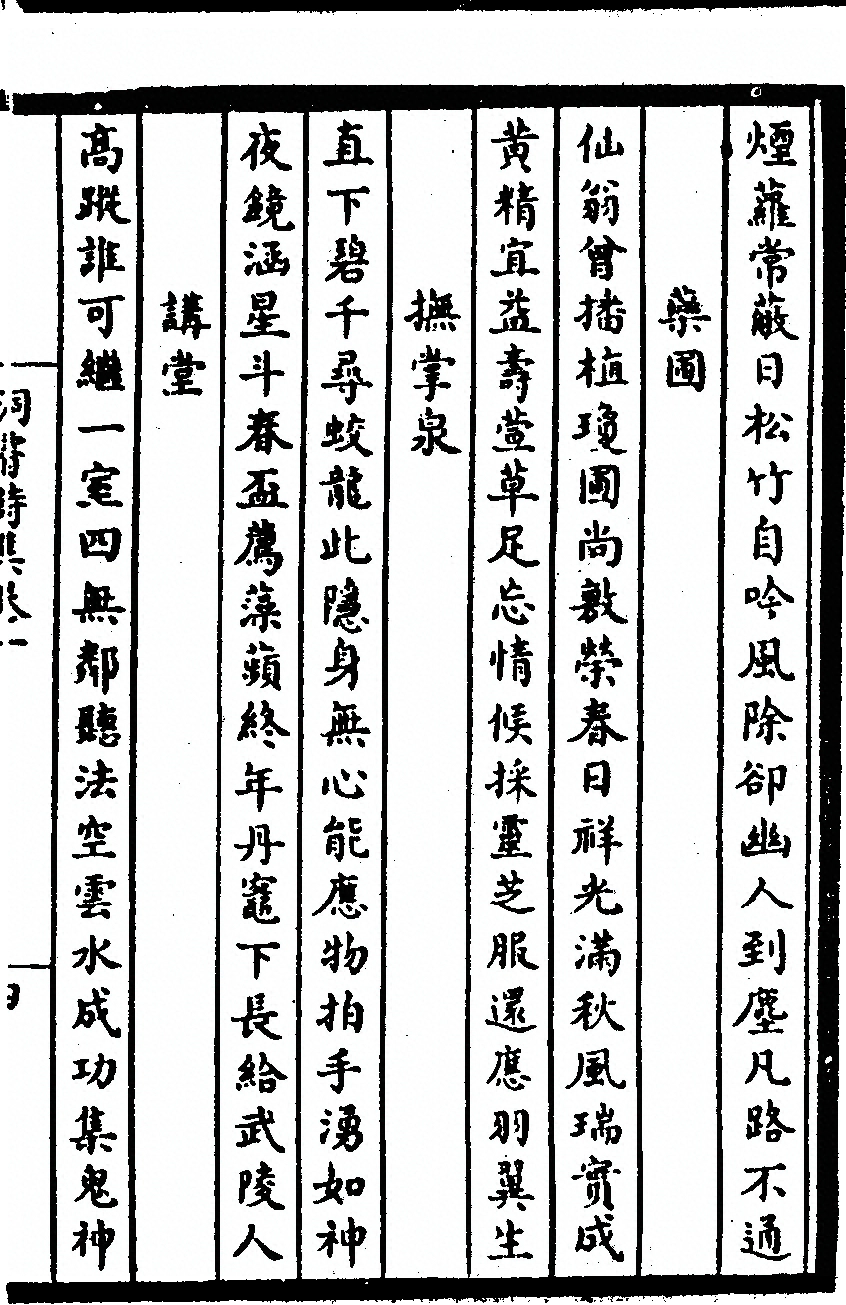 煙蘿常蔽日松竹自吟風除卻幽人到塵凡路不通
藥圃
仙翁曾播植瓊圃尚敷榮春日祥光滿秋風瑞實成
黃精宜益壽萱草足忘情候採靈芝服還應羽翼生
撫掌泉
直下碧千尋蛟龍此隱身無心能應物拍手湧如神
夜鏡涵星斗春盃薦藻蘋終年丹竈下長給武陵人
講堂
高蹤誰可繼一室四無鄰聽法空雲水成功集鬼神
洞霄詩集卷一